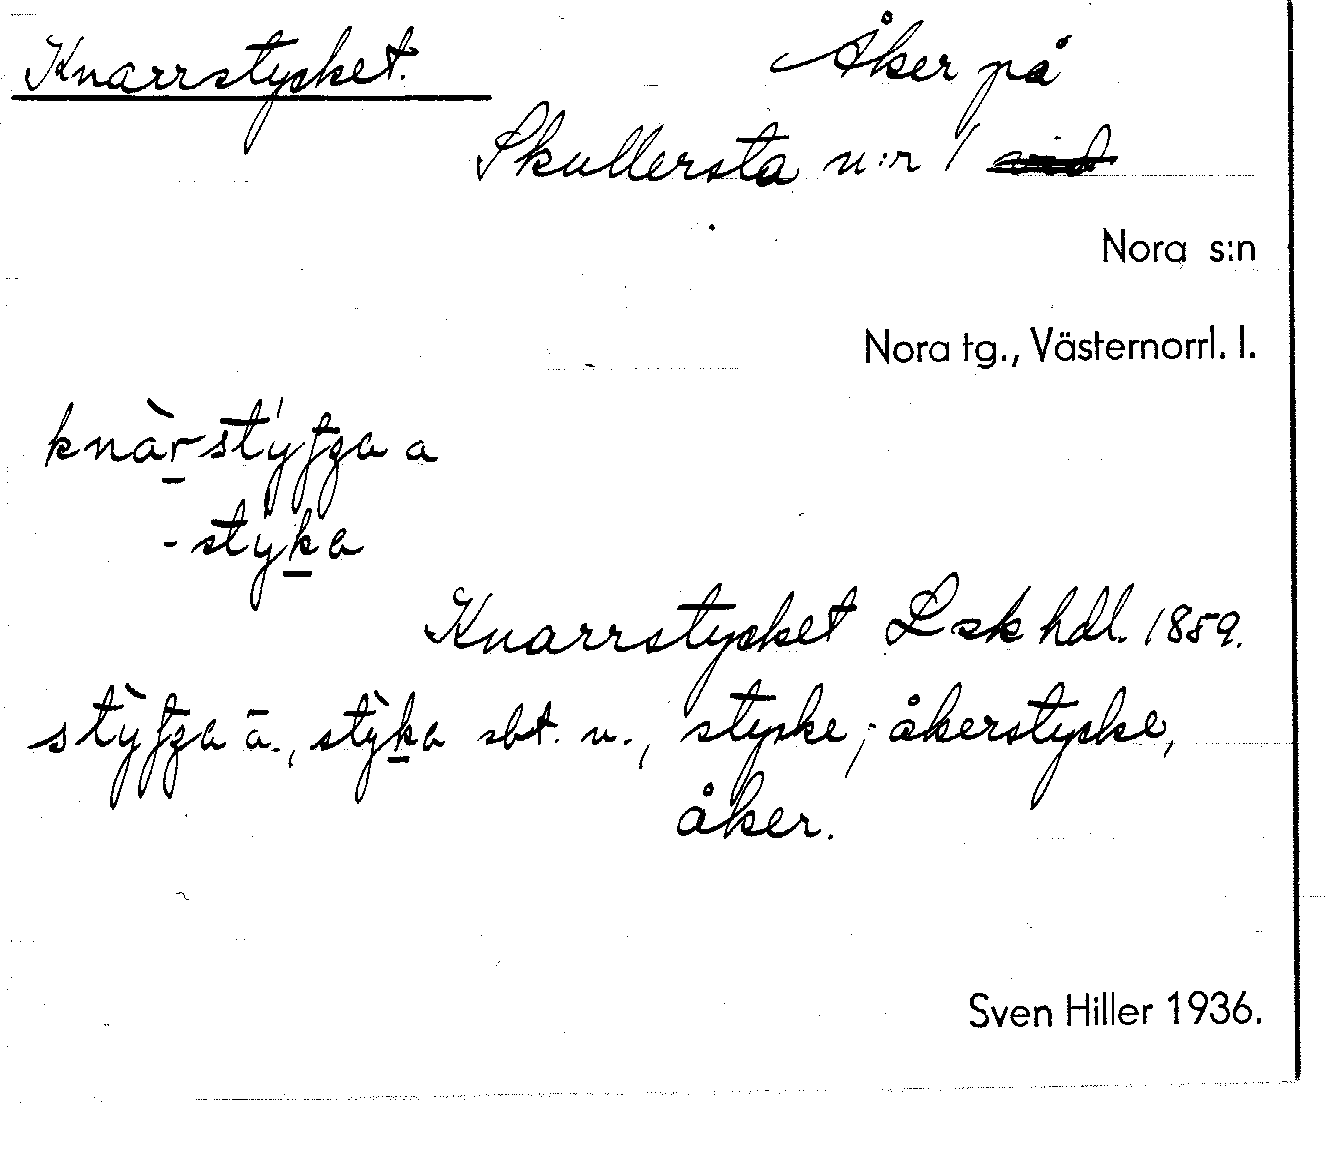 Knarrstycket. Åker på
Skullersta n:r 1
Nora s:n
Nora tg., Västernorrl. l.
-styka
Knarrstycket Lsk hdl. 1859.
styka sbt. n., stycke; åkerstycke,
åker.
Sven Hiller 1936.